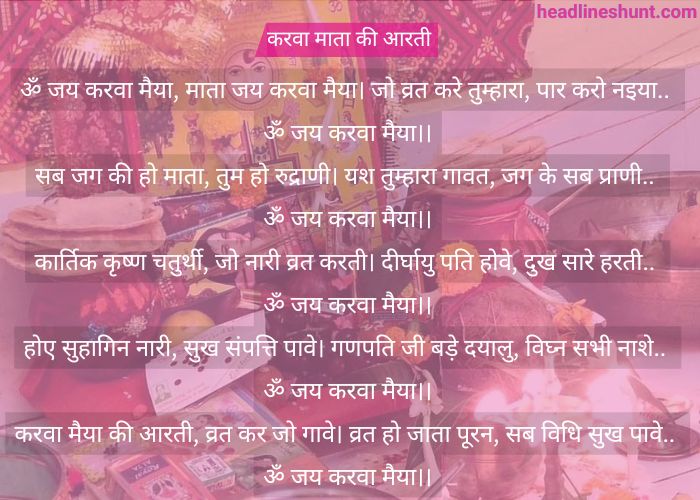 headlineshunt.com
करवा माता की आरती
ॐ जय करवा मैया, माता जय करवा मैया। जो व्रत करे तुम्हारा, पार करो नइया..
ॐ जय करवा मैया।।
सब जग की हो माता, तुम हो रुद्राणी। यश तुम्हारा गावत, जग के सब प्राणी..
ॐ जय करवा मैया।।
कार्तिक कृष्ण चतुर्थी, जो नारी व्रत करती। दीर्घायु पति होवे, दुख सारे हरती..
ॐ जय करवा मैया।।
होए सुहागिन नारी, सुख संपत्ति पावे। गणपति जी बड़े दयालु, विघ्न सभी नाशे..
ॐ जय करवा मैया।।
करवा मैया की आरती, व्रत कर जो गावे। व्रत हो जाता पूरन, सब विधि सुख पावे..
ॐ जय करवा मैया।।